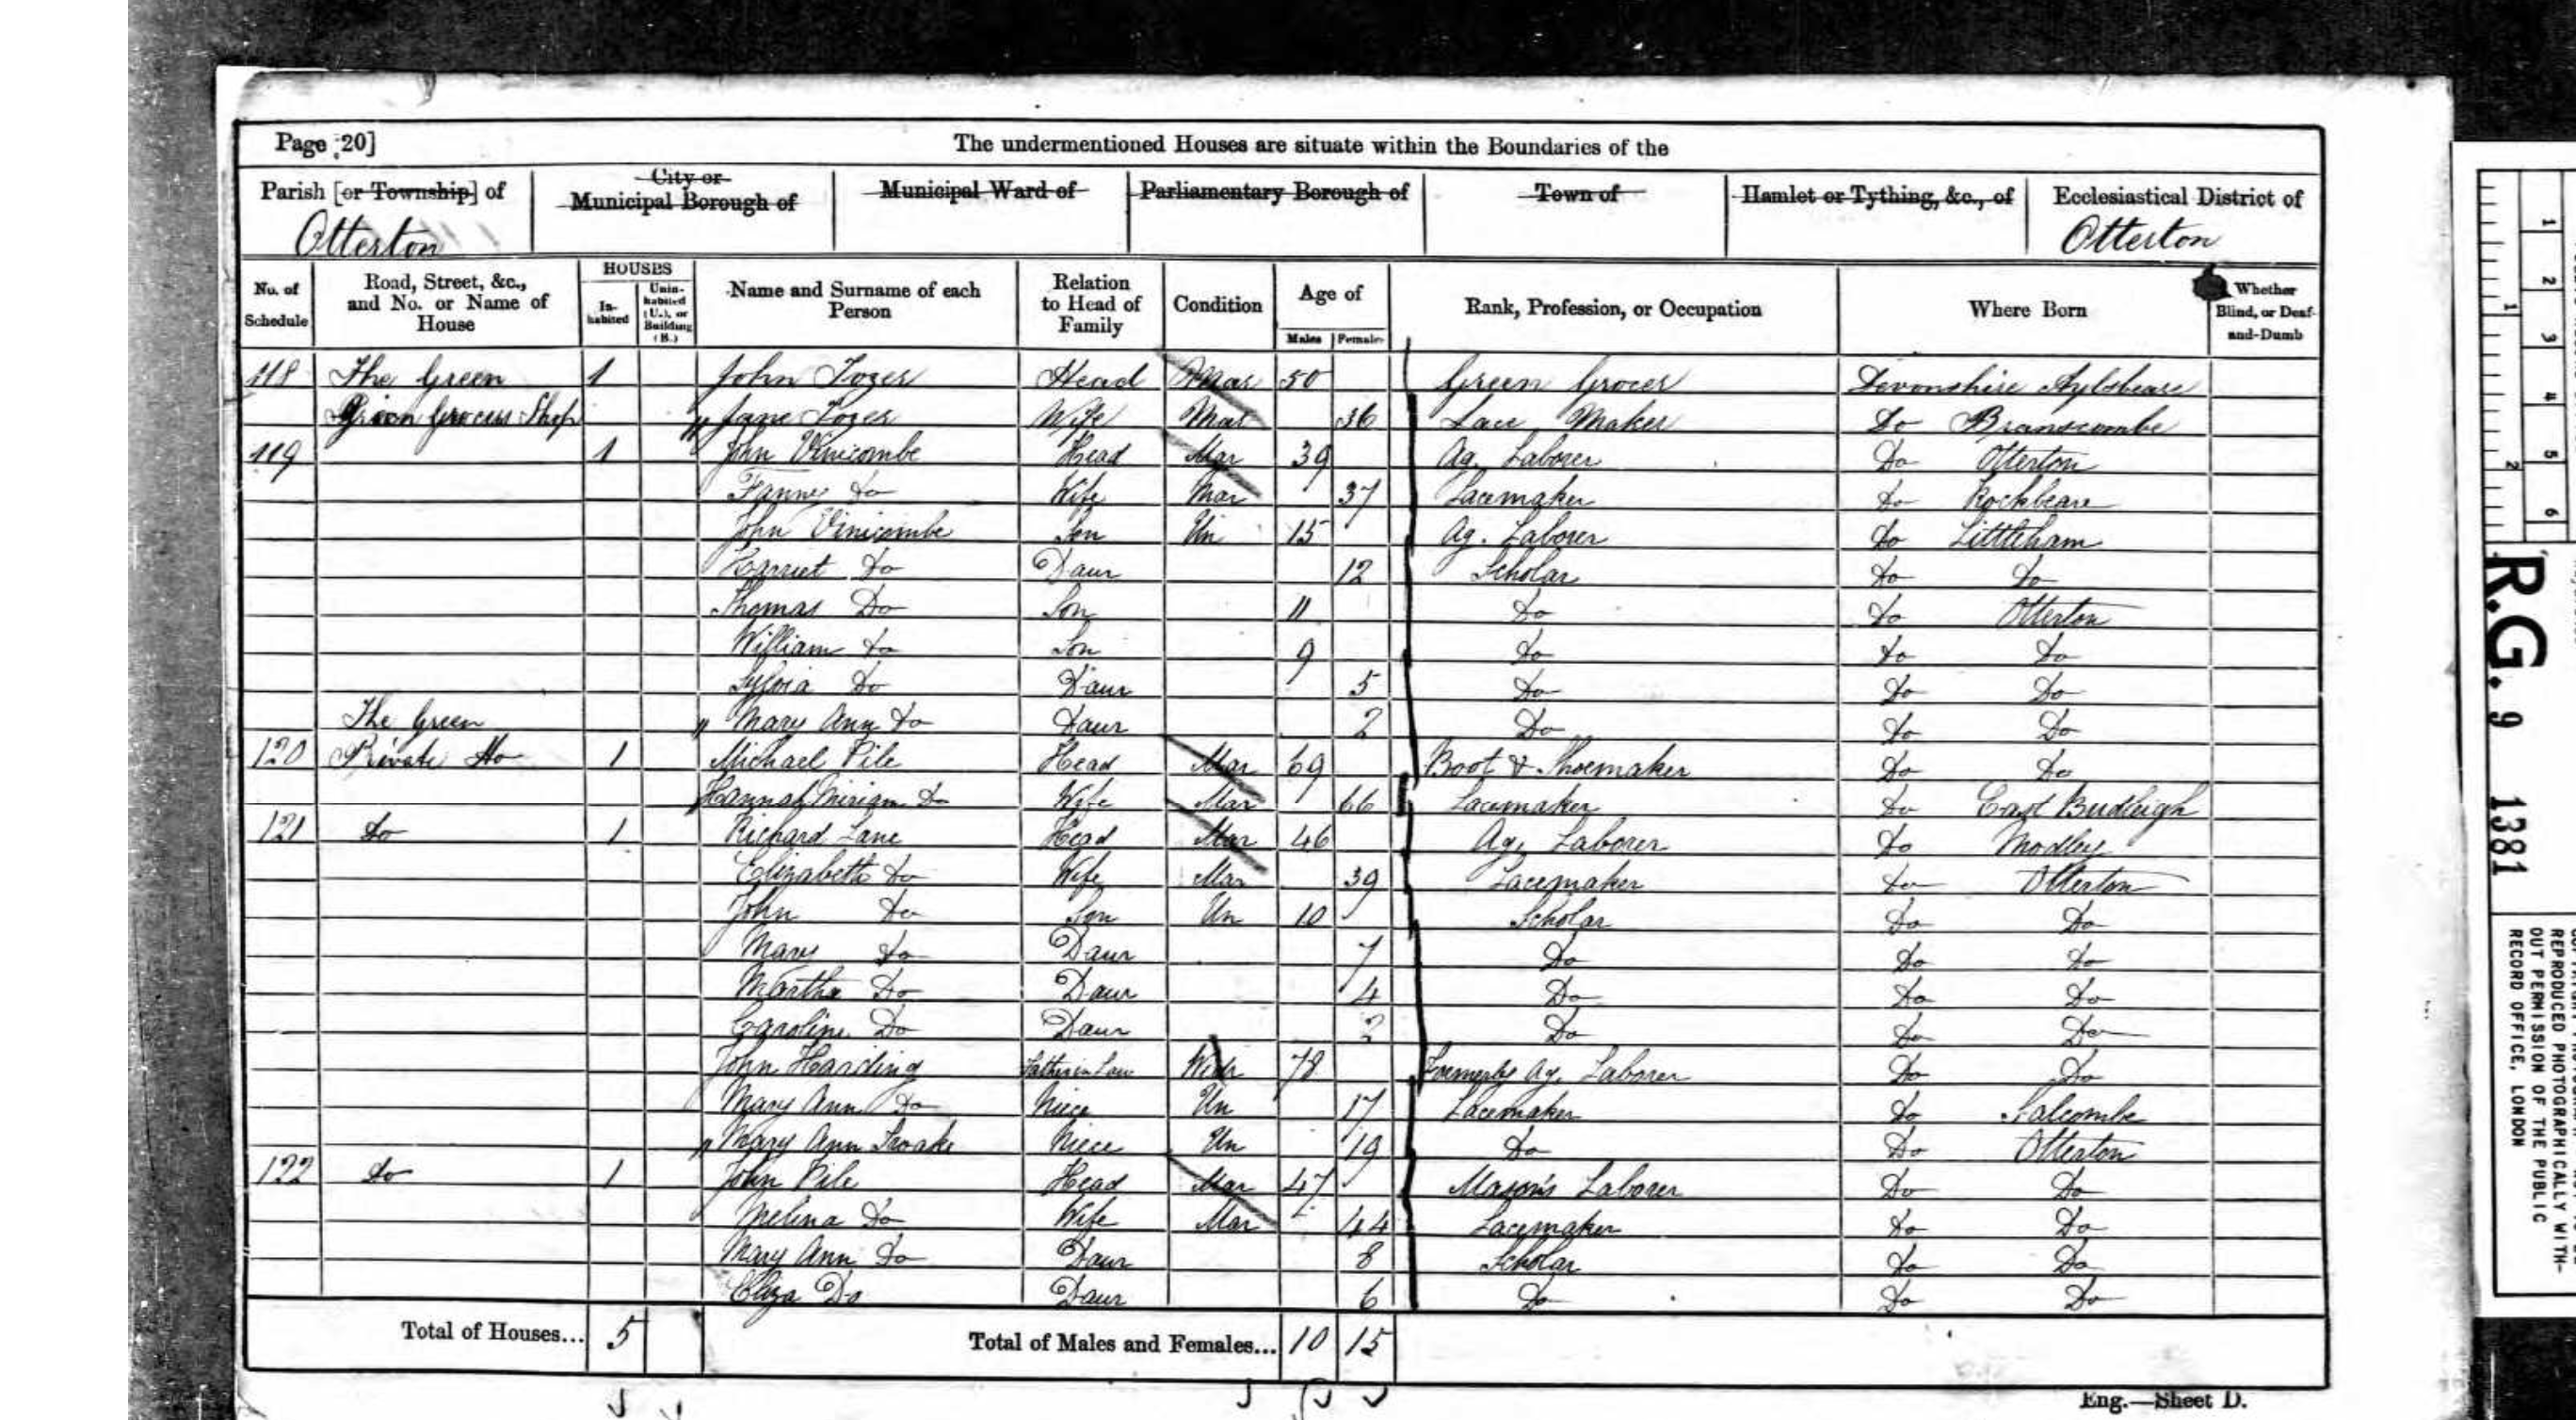 Page 20]
The undermentioned Houses are situate within the Boundaries of the
Parish [or Township] of
Otterton
City or
Municipal Borough of
Municipal Ward of
Parliamentary Borough of
Town of
Hamlet or Tything, &c., of
Ecclesiastical District of
Otterton
No. of
Schedule
Road, Street, &c.,
and No. or Name of
House
HOUSES
In-
habited
Unin-
habited
(U.), or
Building
(B.)
Name and Surname of each
Person
Relation
to Head of
Family
Condition
Age of
Males Females
Rank, Profession, or Occupation
Where Born
Whether
Blind, or Deaf-
and-Dumb
118 The Green 1 John Tozer Head Mar 50 Green Grocer Devonshire Aylsbeare
Green Grocers Shop " Jane Tozer Wife Mar 36 Lace Maker Do Branscombe
119 1 John Vinicombe Head Mar 39 Ag. Laborer Do Otterton
Fanny Do Wife Mar 37 Lacemaker Do Rockbeare
John Vinicombe Son Un 15 Ag. Laborer Do Littleham
Harriet Do Daur 12 Scholar Do Do
Thomas Do Son 11 Do Do Otterton
William Do Son 9 Do Do Do
Sylvia Do Daur 5 Do Do Do
The Green " Mary Ann Do Daur 2 Do Do Do
120 Private Ho 1 Michael Pile Head Mar 69 Boot & Shoemaker Do Do
Hannah Miriam Do Wife Mar 66 Lacemaker Do East Budleigh
121 Do 1 Richard Lane Head Mar 46 Ag. Laborer Do Modbry
Elizabeth Do Wife Mar 39 Lacemaker Do Otterton
John Do Son Un 10 Scholar Do Do
Mary Do Daur 7 Do Do Do
Martha Do Daur 4 Do Do Do
Caroline Do Daur 2 Do Do Do
John Harding Father in Law Widr 78 Formerly Ag. Laborer Do Do
Mary Ann Do Niece Un 17 Lacemaker Do Salcombe
" Mary Ann Niece Un 19 Do Do Otterton
122 Do 1 John Pile Head Mar 47 Mason's Laborer Do Do
Melina Do Wife Mar 44 Lacemaker Do Do
Mary Ann Do Daur 8 Scholar Do Do
Eliza Do Daur 6 Do Do Do
Total of Houses... 5 Total of Males and Females... 10 15
Eng.—Sheet D.
1
2
3
4
5
6
1
2
R.G. 9 1381
REPRODUCED PHOTOGRAPHICALLY WITH-
OUT PERMISSION OF THE PUBLIC
RECORD OFFICE, LONDON